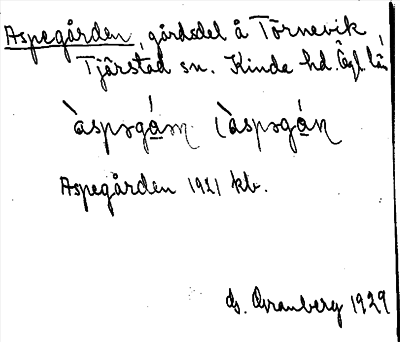 Aspegården, gårdsdel å Törnevik,
Tjärstad sn. Kinda hd. Ögl. län
Aspegården 1921 kb.
G. Granberg 1929